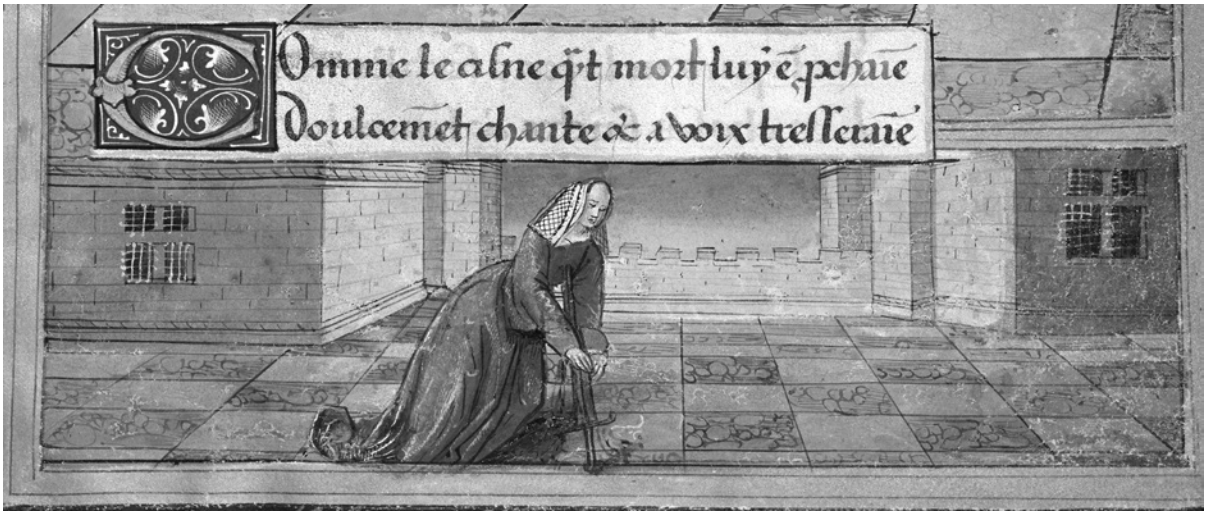 Comme le cisne q̃t mort luy ẽ p̱chaīe
Doulcemēt chante & a voix tresseraīe